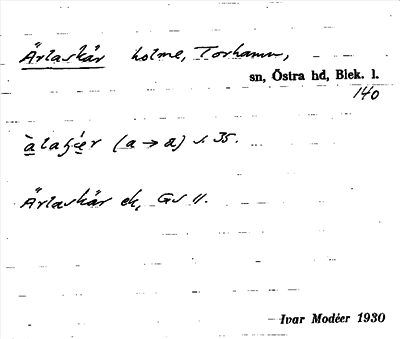 Ärlaskär holme, Torhamn,
sn, Östra hd, Blek. l.
140
(a → a) s. 35.
Ärlaskär ek, GS 11.
Ivar Modéer 1930